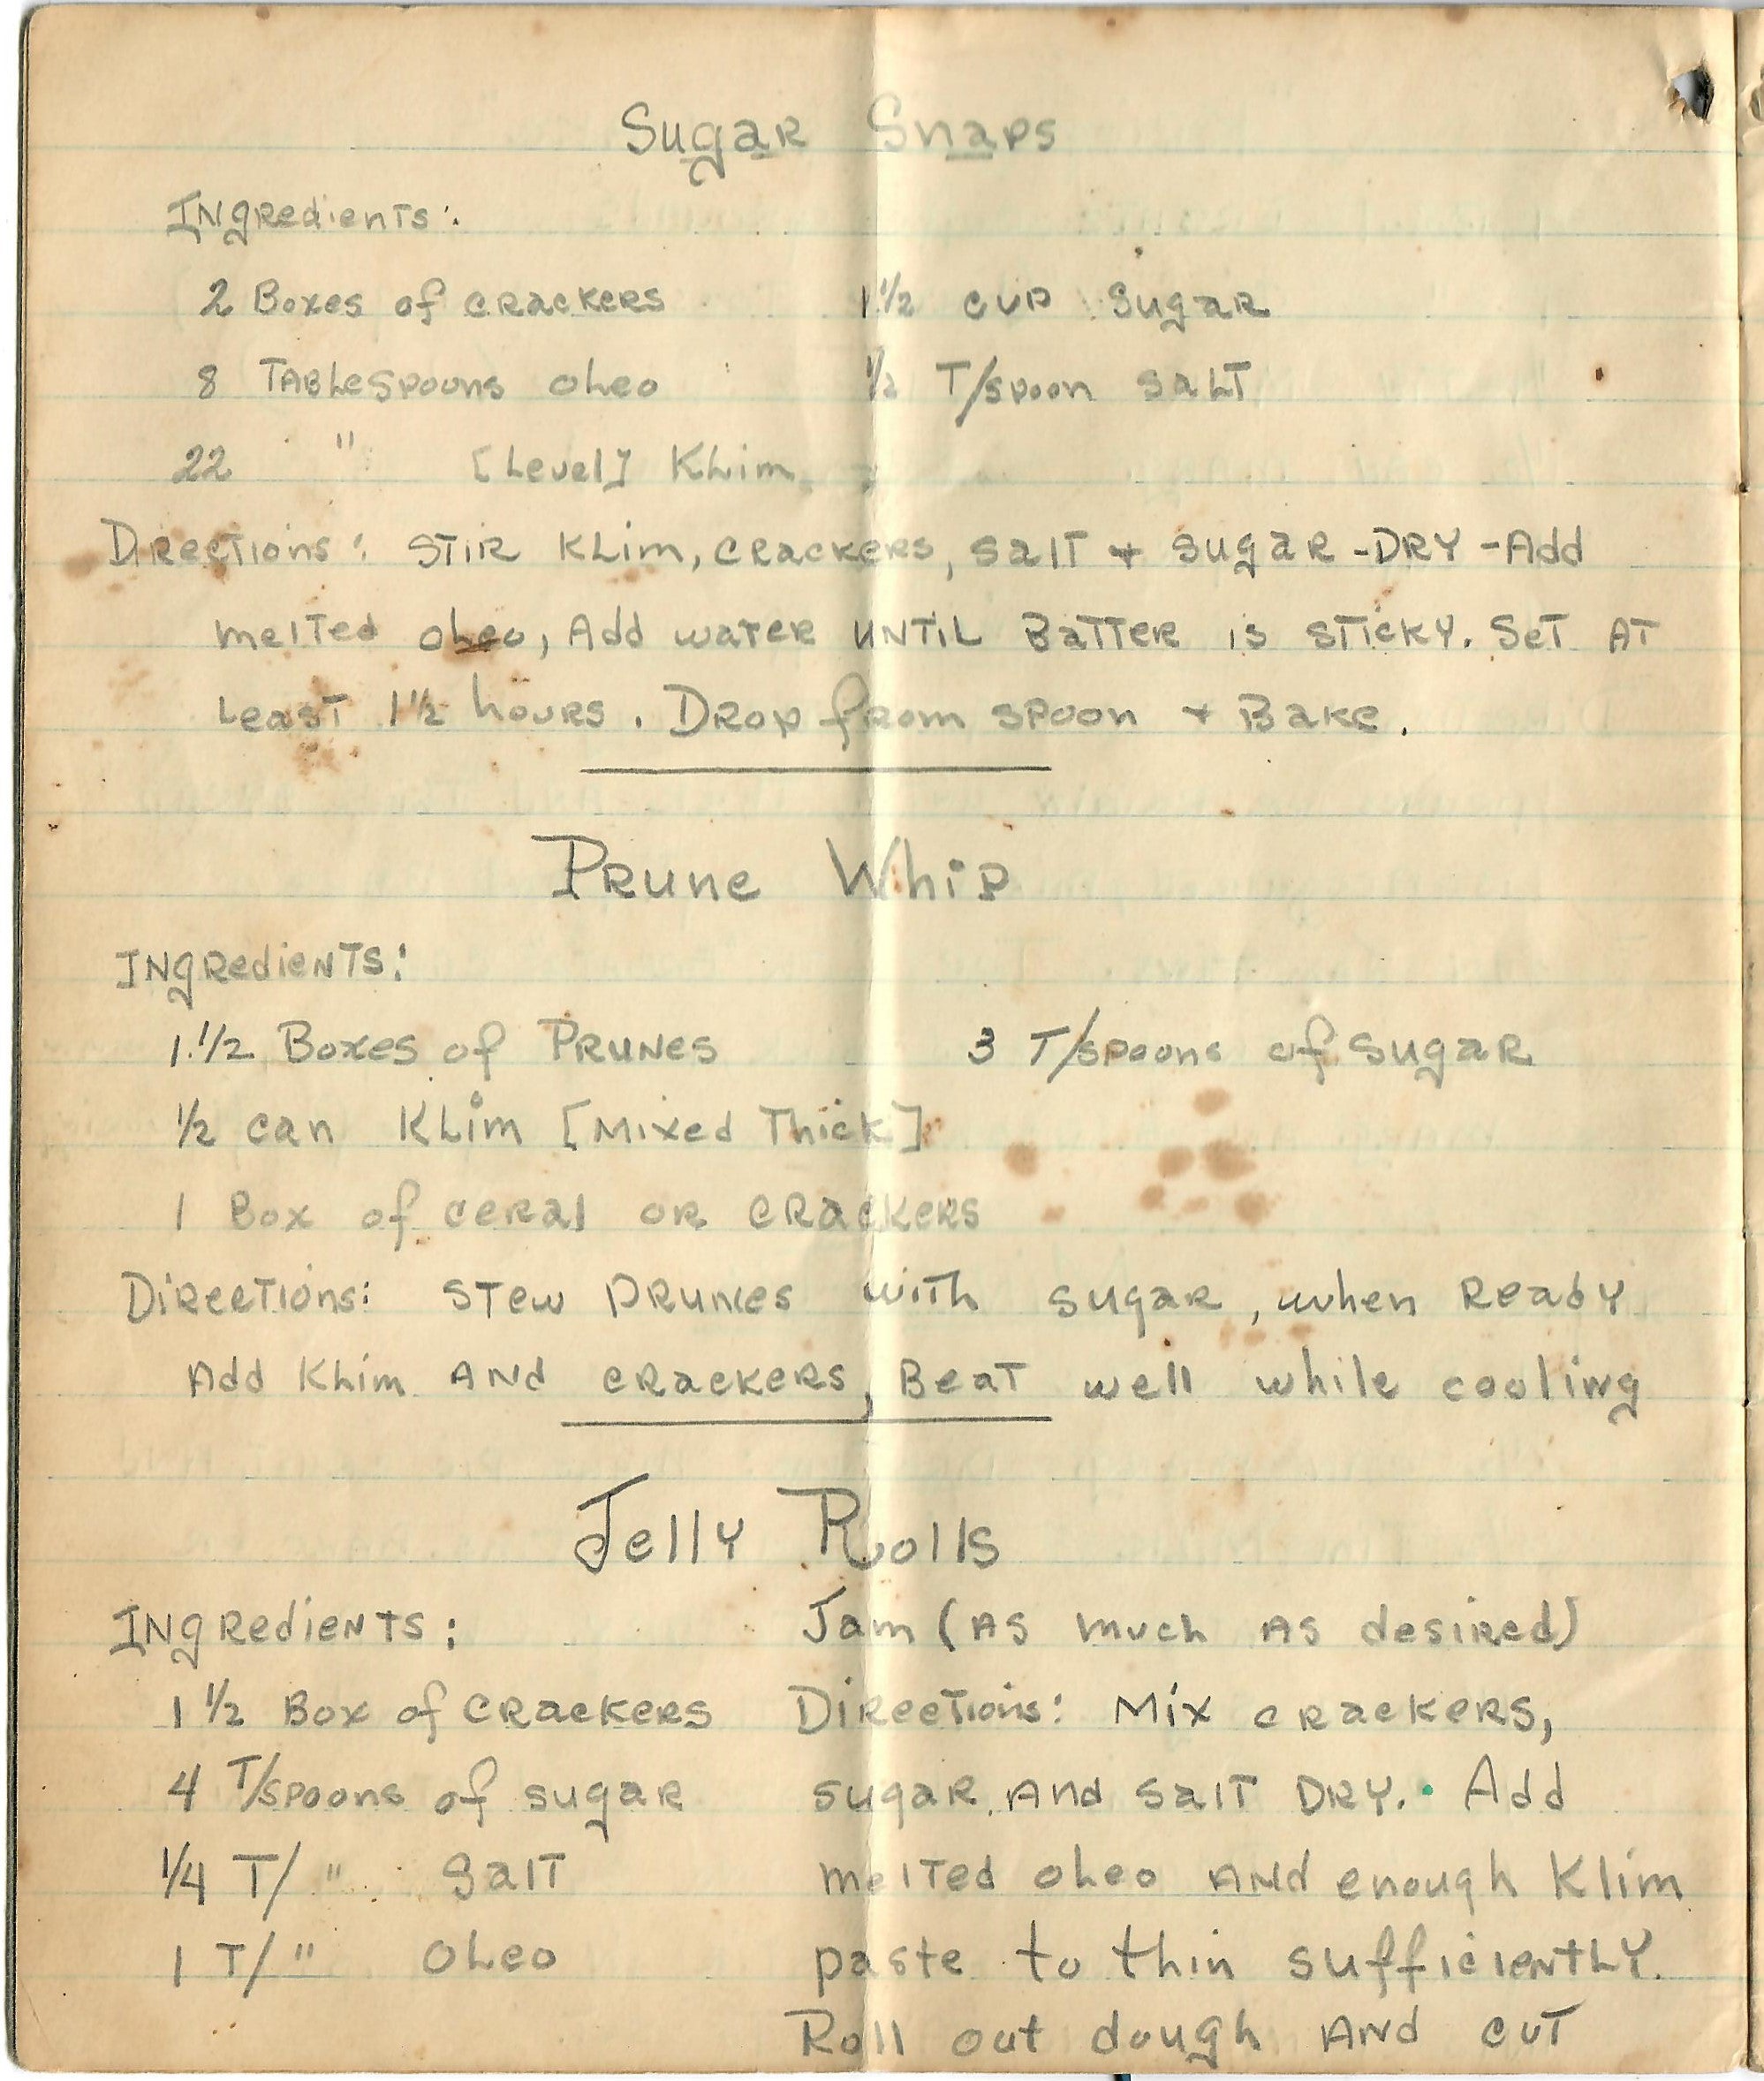 Sugar Snaps
Ingredients:
2 Boxes of crackers 1 1/2 cup sugar
8 Tablespoons oleo 1/2 T/spoon salt
22 " [Level] Klim
Directions: Stir Klim, crackers, salt + sugar - DRY - Add
melted oleo, Add water until Batter is sticky. Set at
least 1 1/2 hours. Drop from spoon + Bake.
Prune Whip
Ingredients:
1 1/2 Boxes of Prunes 3 T/spoons of sugar
1/2 can Klim [Mixed Thick]
1 Box of ceral or crackers
Directions: Stew prunes with sugar, when Ready
Add Klim and crackers, Beat well while cooling
Jelly Rolls
Ingredients:
1 1/2 Box of crackers
4 T/spoons of sugar
1/4 T/ " Salt
1 T/ " Oleo
Jam (as much as desired)
Directions: Mix crackers,
sugar and salt DRY. Add
melted oleo and enough Klim
paste to thin sufficiently.
Roll out dough and cut